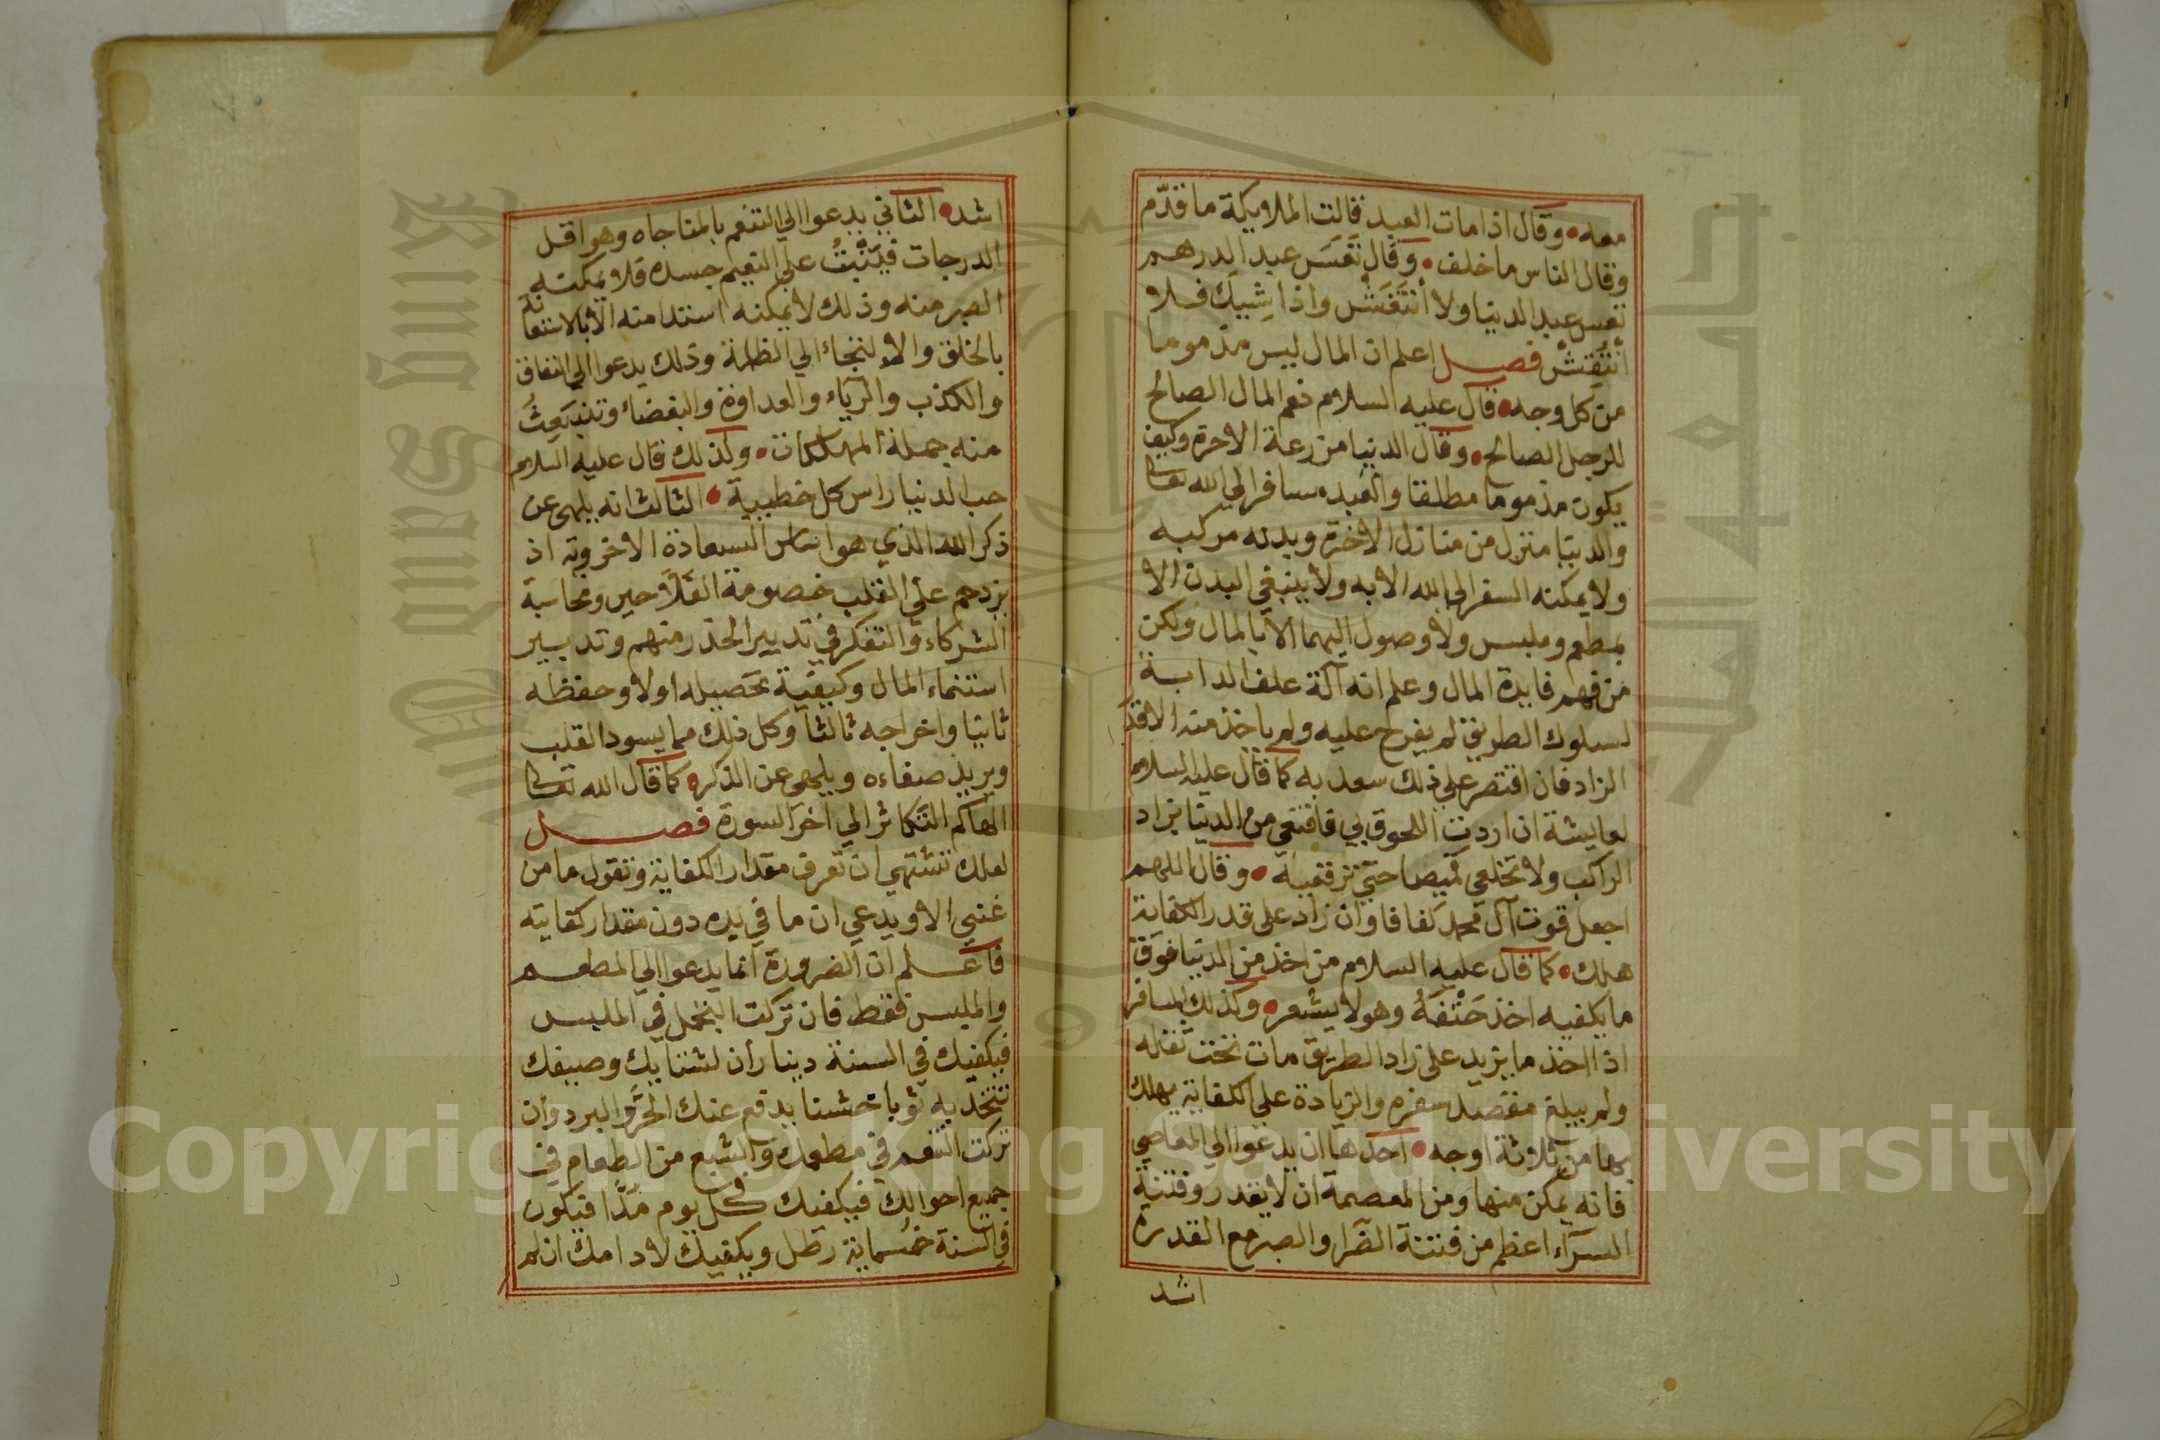 معه وقال اذا مات العبد قالت الملايكة ما قدّم
وقال الناس ما خلف وقال تَعَسَ عبد الدرهم
تعس عبد الدنيا ولا أنتَقَشْ واذا شِيكَ فلا
أنتُقِشْ فصل اعلم ان المال ليس مذموما
من كل وجه قال عليه السلام نعم المال الصالح
للرجل الصالح وقال الدنيا مزرعة الاخرة وكيف
يكون مذموما مطلقا والعبد مسافر الي الله تعالى
والدنيا منزل من منازل الاخرة وبدنه مركبه
ولا يمكنه السفر الي الله الا به ولا ينبغي البدن الا
بمطعم وملبس ولا وصول اليهما الا بالمال ولكن
من فهم فايدة المال وعلم انه آلة علف الدابة
لسلوك الطريق لم يفرح عليه ولم ياخذ منه الا قدر
الزاد فان اقتصر علي ذلك سعد به كما قال عليه السلام
لعايشة ان اردت اللحوق بي فاقنعي من الدنيا بزاد
الراكب ولا تخلعي قميصا حتي ترقعيه وقال اللهم
اجعل قوت آل محمد كفافا وان زاد علي قدر الكفاية
هلك كما قال عليه السلام من اخذ من الدنيا فوق
ما يكفيه اخذ حَتْفَهُ وهو لا يشعر وكذلك المسافر
اذا اخذ ما يزيد علي زاد الطريق مات تحت ثقله
ولم يبلغ مقصد سفره والزيادة علي الكفاية يهلك
بها من ثلاثة اوجه احدها ان يدعوا الي المعاصي
فانه يمكن منها ومن العصمة ان لا يقدر وفتنة
السرآء اعظم من فتنة الضرا والصبر مع القدرة
اشد
اشد الثاني يدعوا الي التنعم بالمباحات وهو اقل
الدرجات فيَنْبُتُ علي النعيم جسده فلا يمكنه
الصبر منه وذلك لا يمكنه استدامته الا بالاستعانة
بالخلق والالتجاء الي الظلمة وذلك يدعوا الي النفاق
والكذب والرياء والعداوة والبغضاء وتنبعث
منه جملة المهلكات وكذلك قال عليه السلام
حب الدنيا راس كل خطيية الثالث انه يلهي عن
ذكر الله الذي هو اساس السعادة الاخروية اذ
يزدحم علي القلب خصومة الفلاحين ومحاسبة
الشركاء والتفكر في تدبير الحذر منهم وتدبير
استنماء المال وكيفية تحصيله اولا وحفظه
ثانيا واخراجه ثالثا وكل ذلك مما يسود القلب
ويزيل صفاءه ويلهي عن الذكر كما قال الله تعالى
الهاكم التكاثر الي اخر السورة فصل
لعلك تشتهي ان تعرف مقدار الكفاية وتقول ما من
غني الا ويدعي ان ما في يده دون مقدار كفايته
فاعلم ان الضرورة انما يدعوا الي المطعم
والملبس فقط فان تركت التجمل في الملبس
فيكفيك في السنة ديناران لشتايك وصيفك
تتخذ به ثوبا خشنا يدفع عنك الحرَّ والبرد وان
تركت التنعم في مطعمك والشبع من الطعام في
جميع احوالك فيكفيك كل يوم مدّا فيكون
في السنة خمسماية رطل ويكفيك لادامك ان لم
Copyright © King Saud University